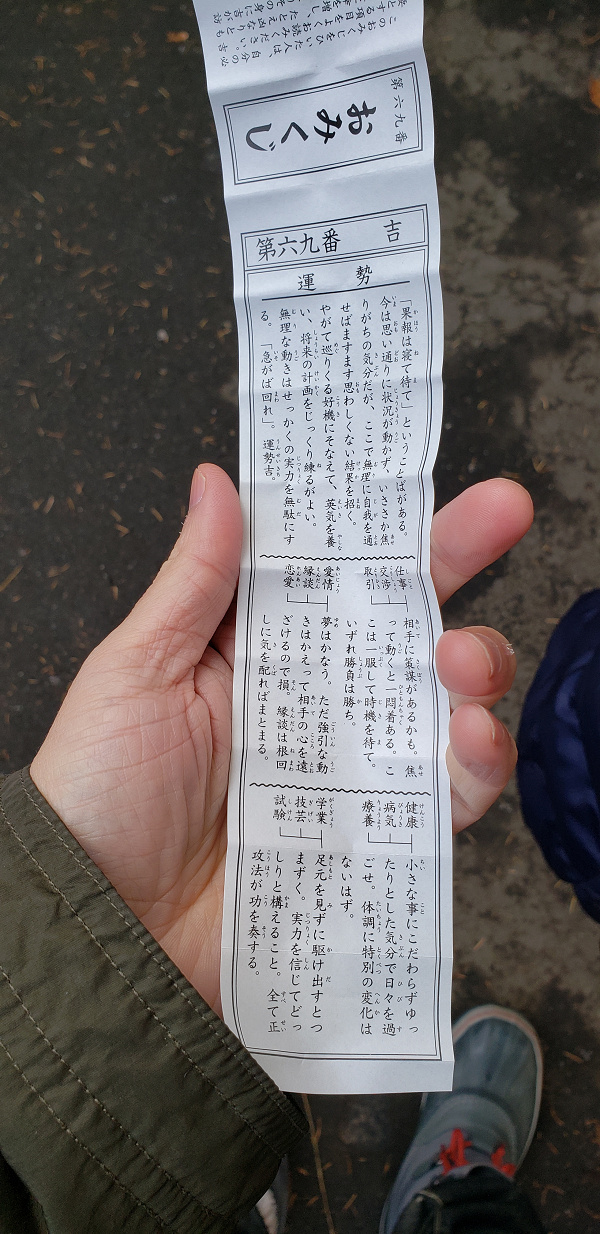 このおみくじをひいた人は、自分の
をよくお読みください。吉
たとえ凶なりとも
第六九番
おみくじ
第六九番 吉
運勢
「果報は寝て待て」ということばがある。
今は思い通りに状況が動かず、いささか焦
りがちの気分だが、ここで無理に自我を通
せばますます思わしくない結果を招く。
やがて巡りくる好機にそなえて、英気を養
い、将来の計画をじっくり練るがよい。
無理な動きはせっかくの実力を無駄にす
る。「急がば回れ」。運勢吉。
仕事
交渉
取引
相手に策謀があるかも。焦
って動くと一悶着ある。こ
こは一服して時機を待て。
いずれ勝負は勝ち。
愛情
縁談
恋愛
夢はかなう。ただ強引な動
きはかえって相手の心を遠
ざけるので損。縁談は根回
しに気を配ればまとまる。
健康
病気
療養
小さな事にこだわらずゆっ
たりとした気分で日々を過
ごせ。体調に特別の変化は
ないはず。
学業
技芸
試験
足元を見ずに駆け出すとつ
まずく。実力を信じてどっ
しりと構えること。全て正
攻法が功を奏する。